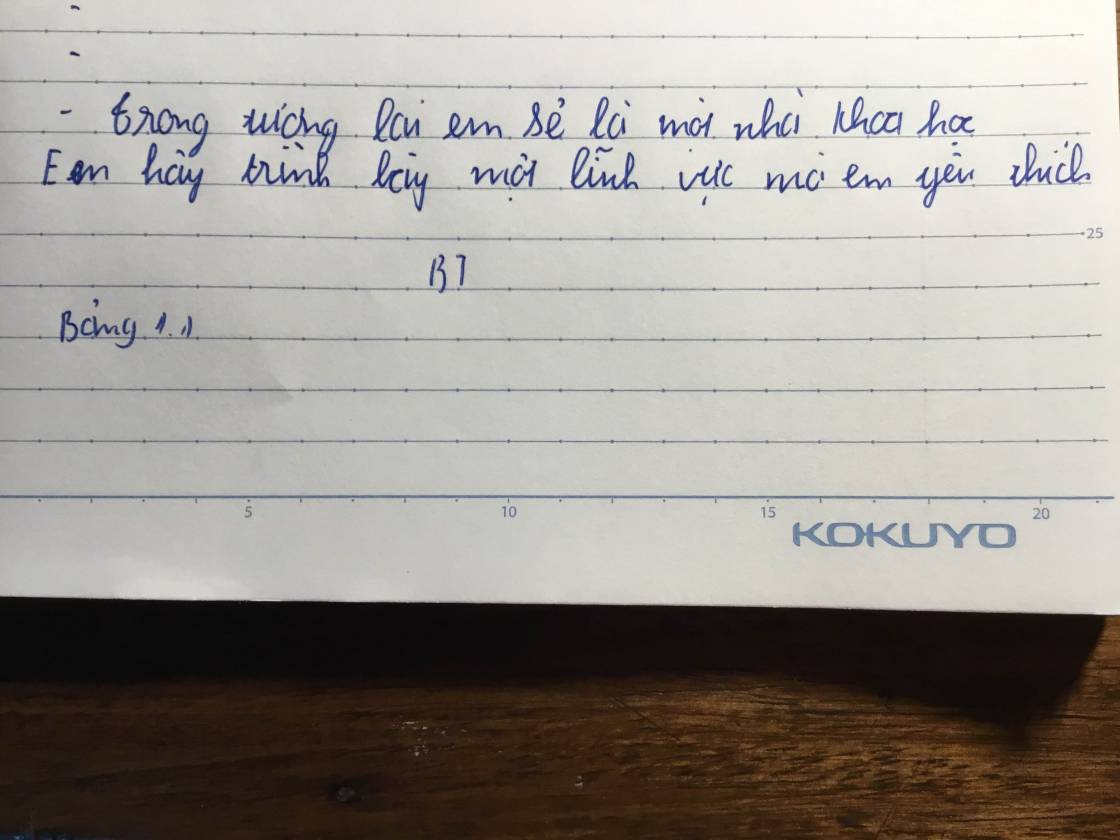 -
-
- trong tương lai em sẽ là một nhà khoa học
Em hãy trình bày một lĩnh vực mà em yêu thích
25
BT
Bảng 1.1
5 10 15 20
KOKUYO